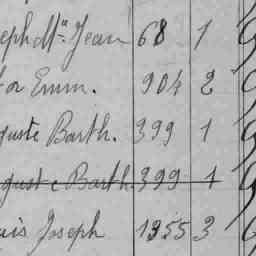 eph Mª Jean 68 1
or Emm. 904 2
guste Barth. 399 1
guste Barth. 399 1
uis Joseph 1355 3